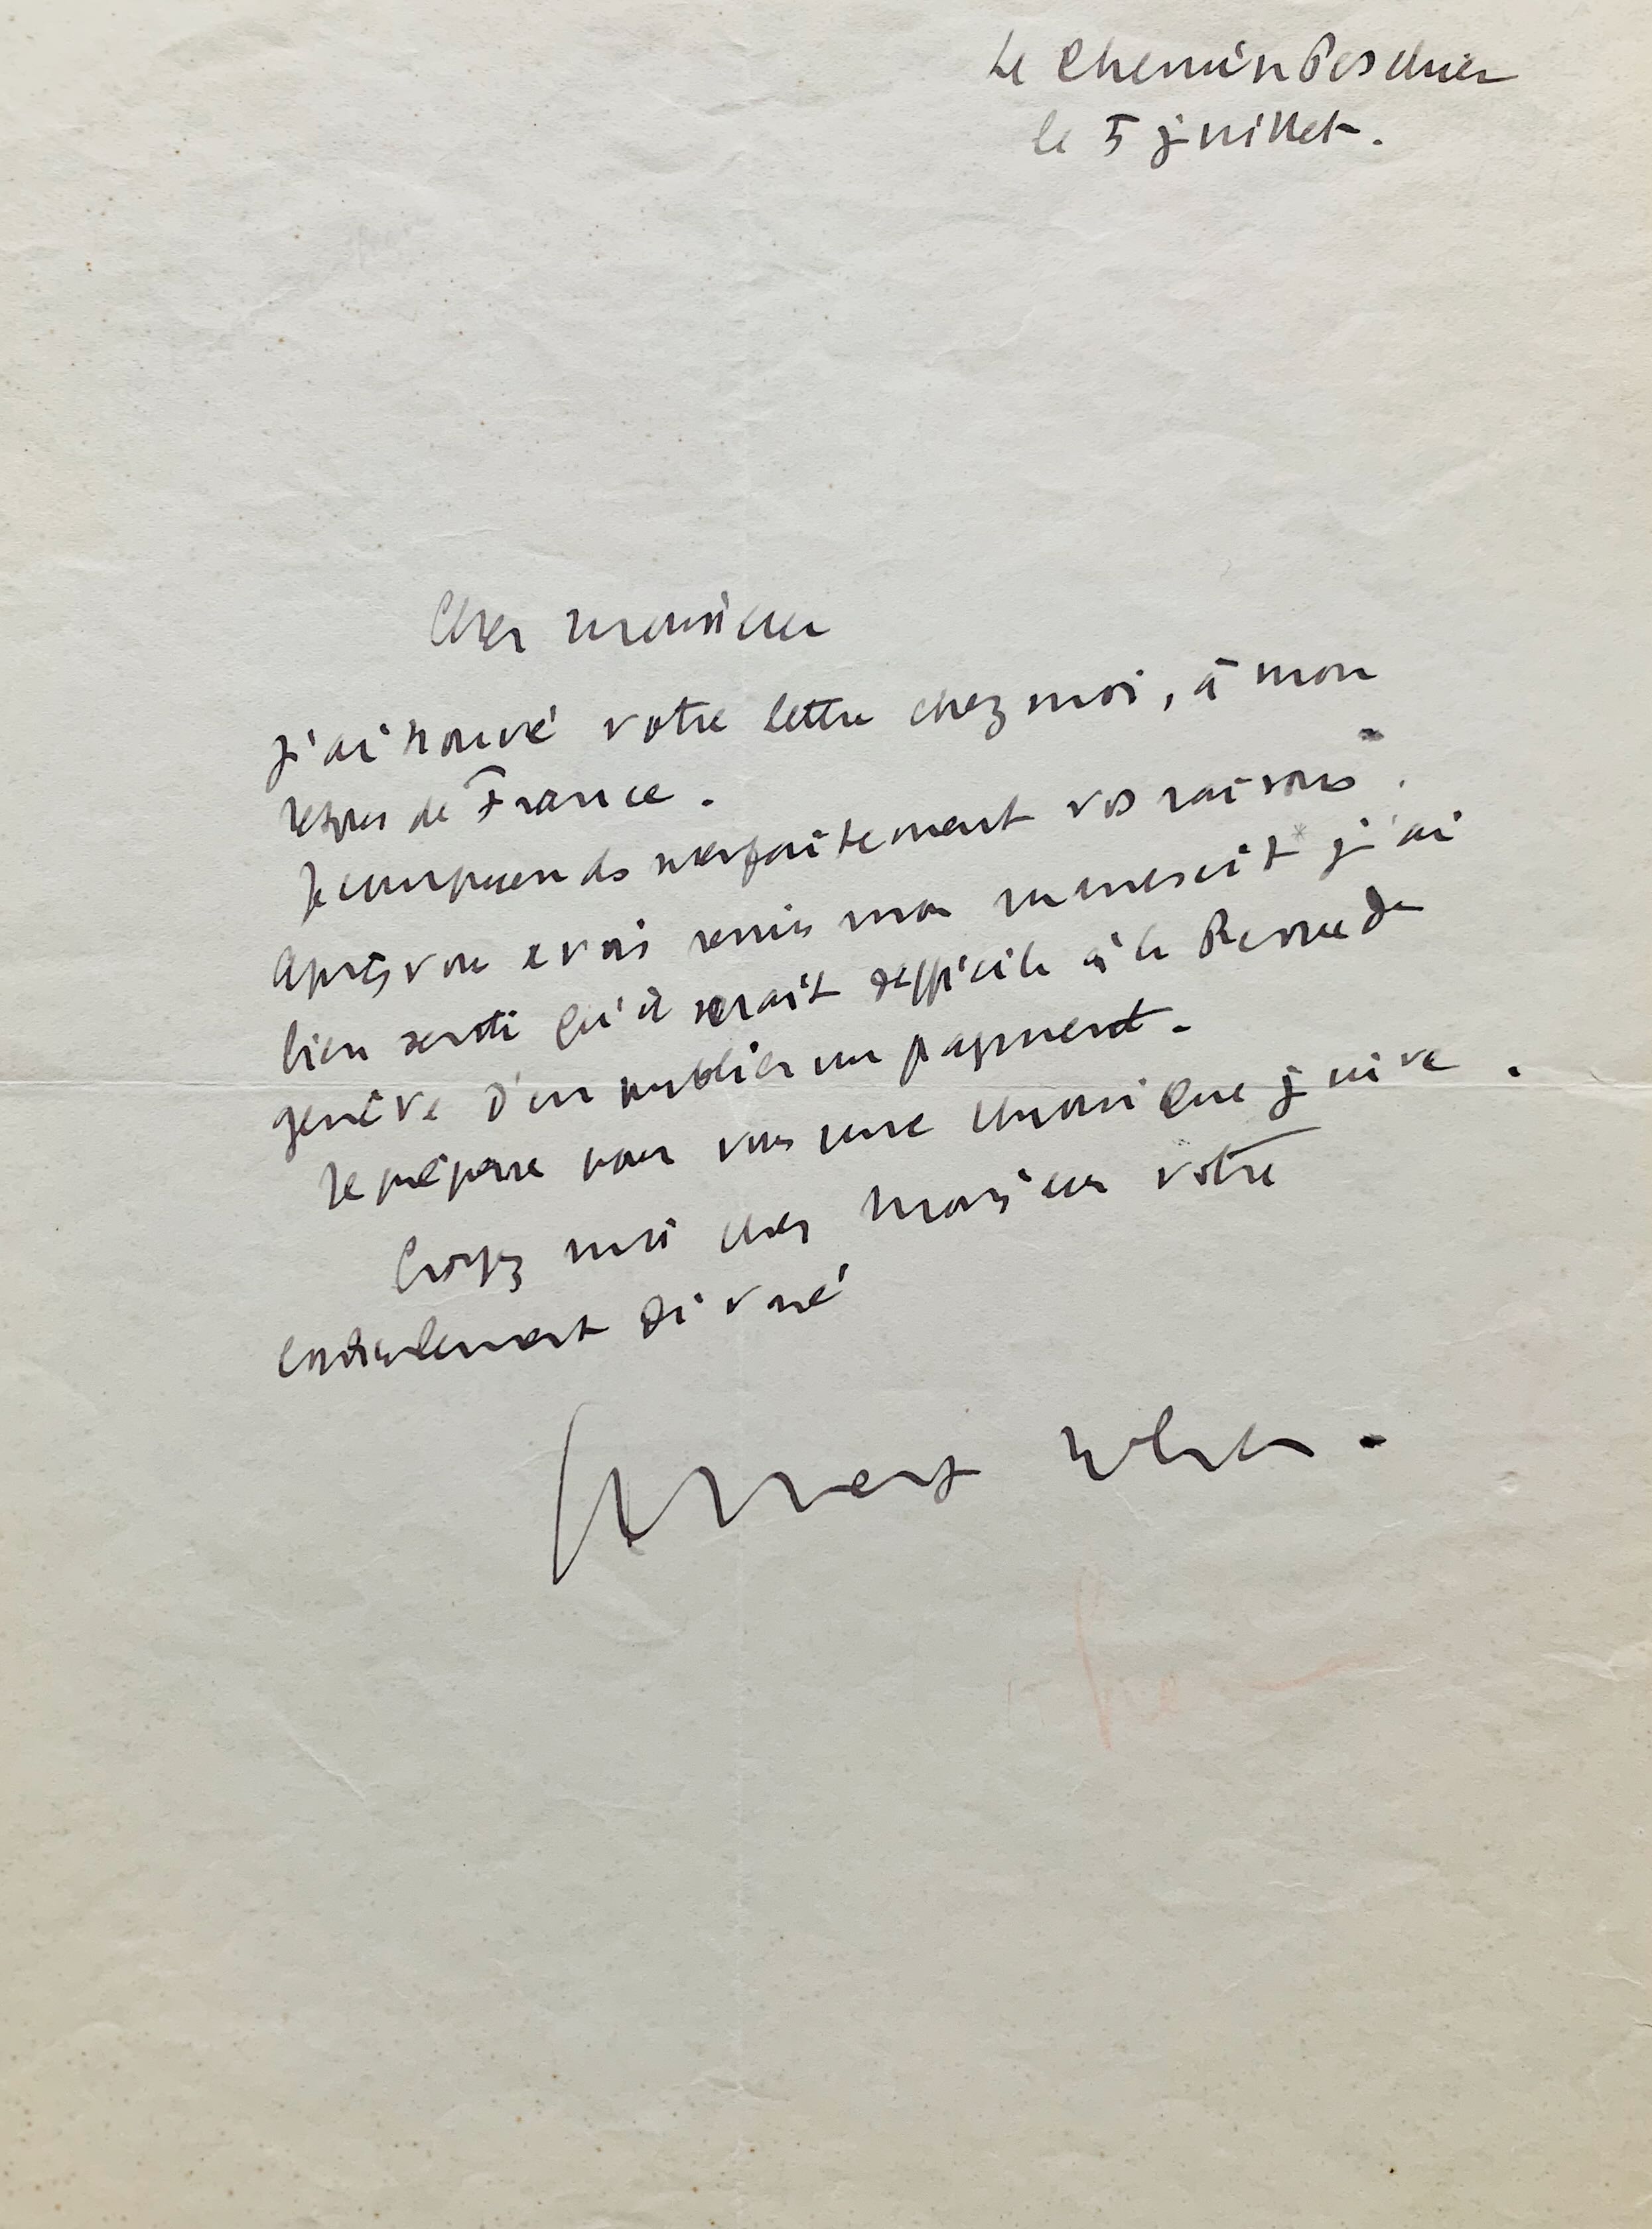 Le Chemin
le 5 juillet.
Cher monsieur
J'ai trouvé votre lettre chez moi, à mon
retour de France.
Je comprends parfaitement vos raisons.
Après vous avoir remis mon manuscrit j'ai
bien senti qu'il serait difficile à la Revue de
Genève d'en publier un fragment.
Je prépare pour vous une chronique juive.
Croyez moi cher Monsieur votre
cordialement dévoué
Albert Cohen.